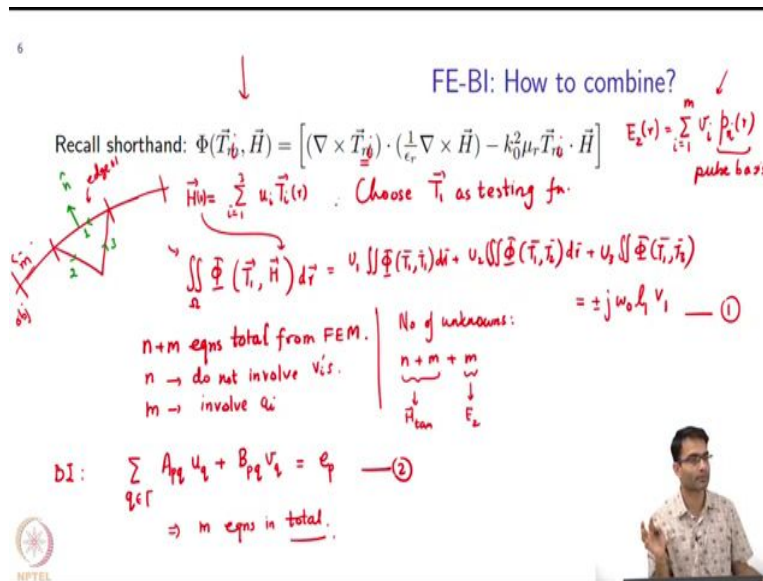 6
FE-BI: How to combine?
Recall shorthand: Φ(T⃗ₘ, H⃗) = [(∇ × T⃗ₘ) · (1/εᵣ ∇ × H⃗) − k₀² μᵣ T⃗ₘ · H⃗]
E₂(r) = Σᵢ₌₁ᵐ vᵢ pᵢ(r)
pulse basis
edge #1
n̂
1
2
3
m
obj
H⃗(r) = Σᵢ₌₁³ uᵢ T⃗ᵢ(r) . Choose T⃗₁ as testing fn.
∬_Ω Φ(T⃗₁, H⃗) dr⃗ = u₁ ∬ Φ(T⃗₁, T⃗₁) dr⃗ + u₂ ∬ Φ(T⃗₁, T⃗₂) dr⃗ + u₃ ∬ Φ(T⃗₁, T⃗₃)
= ± j ω₀ l₁ v₁ — ①
n+m eqns total from FEM.
n → do not involve vᵢ's.
m → involve
No of unknowns:
n + m + m
H⃗tan E₂
BI: Σ_{q∈Γ} A_pq u_q + B_pq v_q = e_p — ②
⇒ m eqns in total.
NPTEL